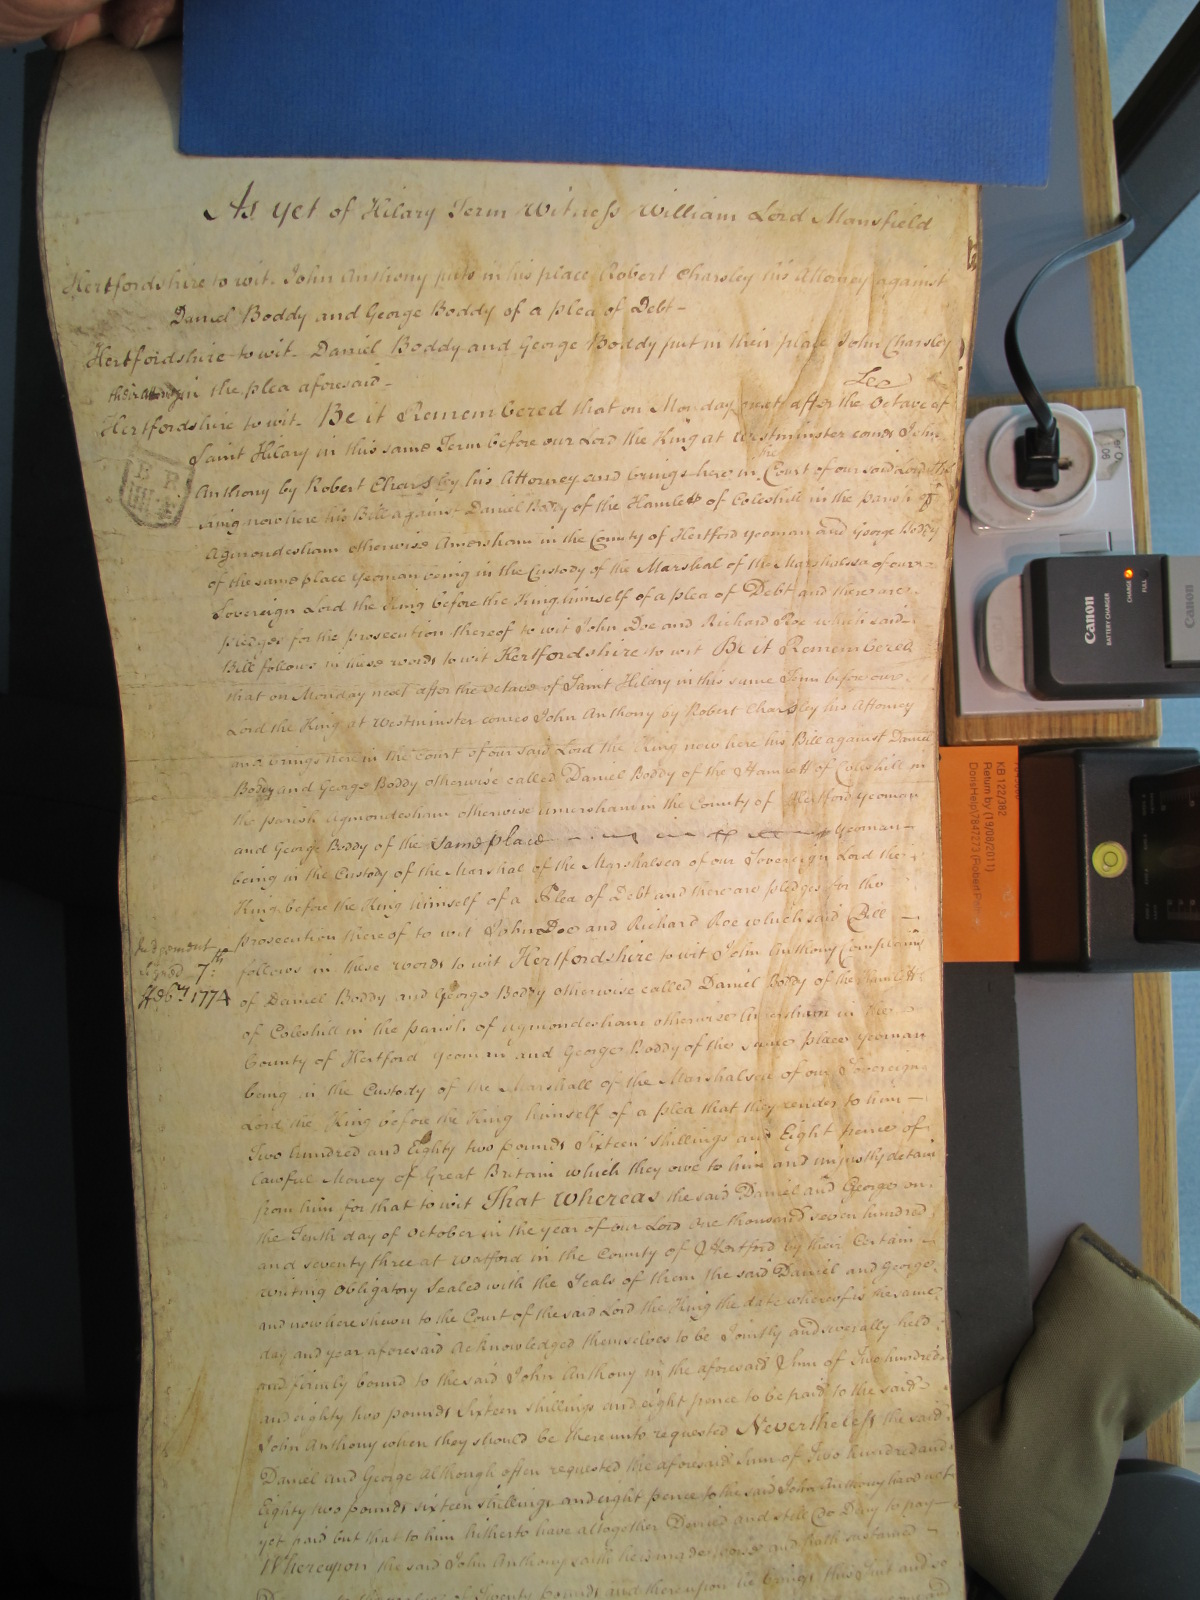 As yet of Hilary Term Witness William Lord Mansfield
Hertfordshire to wit. John Anthony puts in his place Robert Charsley his Attorney against
Daniel Boddy and George Boddy of a plea of Debt -
Hertfordshire to wit - Daniel Boddy and George Boddy put in their place John Charsley
their attorney in the plea aforesaid -
Lee
Hertfordshire to wit. Be it Remembered that on Monday next after the Octave of
Saint Hilary in this same Term before our Lord the King at Westminster comes John
Anthony by Robert Charsley his Attorney and brings here in the Court of our said Lord the
King now here his Bill against Daniel Boddy of the Hamlet of Coleshill in the parish of
Agmondesham otherwise Amersham in the County of Hertford yeoman and George Boddy
of the same place yeoman being in the Custody of the Marshal of the Marshalsea of our
Sovereign Lord the King before the King himself of a plea of Debt and there are
pledges for the prosecution thereof to wit John Doe and Richard Roe which said
Bill follows in these words to wit Hertfordshire to wit Be it Remembered
that on Monday next after the octave of Saint Hilary in this same Term before our
Lord the King at Westminster comes John Anthony by Robert Charsley his Attorney
and brings here in the Court of our said Lord the King now here his Bill against Daniel
Boddy and George Boddy otherwise called Daniel Boddy of the Hamlett of Coleshill in
the parish Agmondesham otherwise Amersham in the County of Hertford yeoman
and George Boddy of the same place yeoman
being in the Custody of the Marshal of the Marshalsea of our Sovereign Lord the
King before the King himself of a Plea of Debt and there are pledges for the
prosecution thereof to wit John Doe and Richard Roe which said Bill
Judgment
Signed 7th
Feb'ry 1774
follows in these words to wit Hertfordshire to wit John Anthony Complains
of Daniel Boddy and George Boddy otherwise called Daniel Boddy of the Hamlett
of Coleshill in the parish of Agmondesham otherwise Amersham in the
County of Hertford yeoman and George Boddy of the same place yeoman
being in the Custody of the Marshall of the Marshalsea of our Sovereign
Lord the King before the King himself of a plea that they render to him
Two hundred and Eighty two pounds Sixteen shillings and Eight pence of
lawful Money of Great Britain which they owe to him and unjustly detain
from him for that to wit That whereas the said Daniel and George on
the Tenth day of October in the year of our Lord one thousand seven hundred
and seventy three at Watford in the County of Hertford by their Certain
writing Obligatory Sealed with the Seals of them the said Daniel and George
and now here shewn to the Court of the said Lord the King the date whereof is the same
day and year aforesaid Acknowledged themselves to be Jointly and severally held
and firmly bound to the said John Anthony in the aforesaid Sum of Two hundred
and eighty two pounds Sixteen shillings and eight pence to be paid to the said
John Anthony when they should be thereunto requested Nevertheless the said
Daniel and George although often requested the aforesaid Sum of Two hundred and
Eighty two pounds sixteen shillings and eight pence to the said John Anthony have not
yet paid but that to him hitherto have altogether Denied and still Do Deny to pay
Whereupon the said John Anthony saith he is made worse and hath sustained
Damage to the value of Twenty pounds and thereupon he brings this suit and so
Canon
BATTERY CHARGER
CHARGE
FULL
Canon
KB 122/382
Return by (19/08/2011)